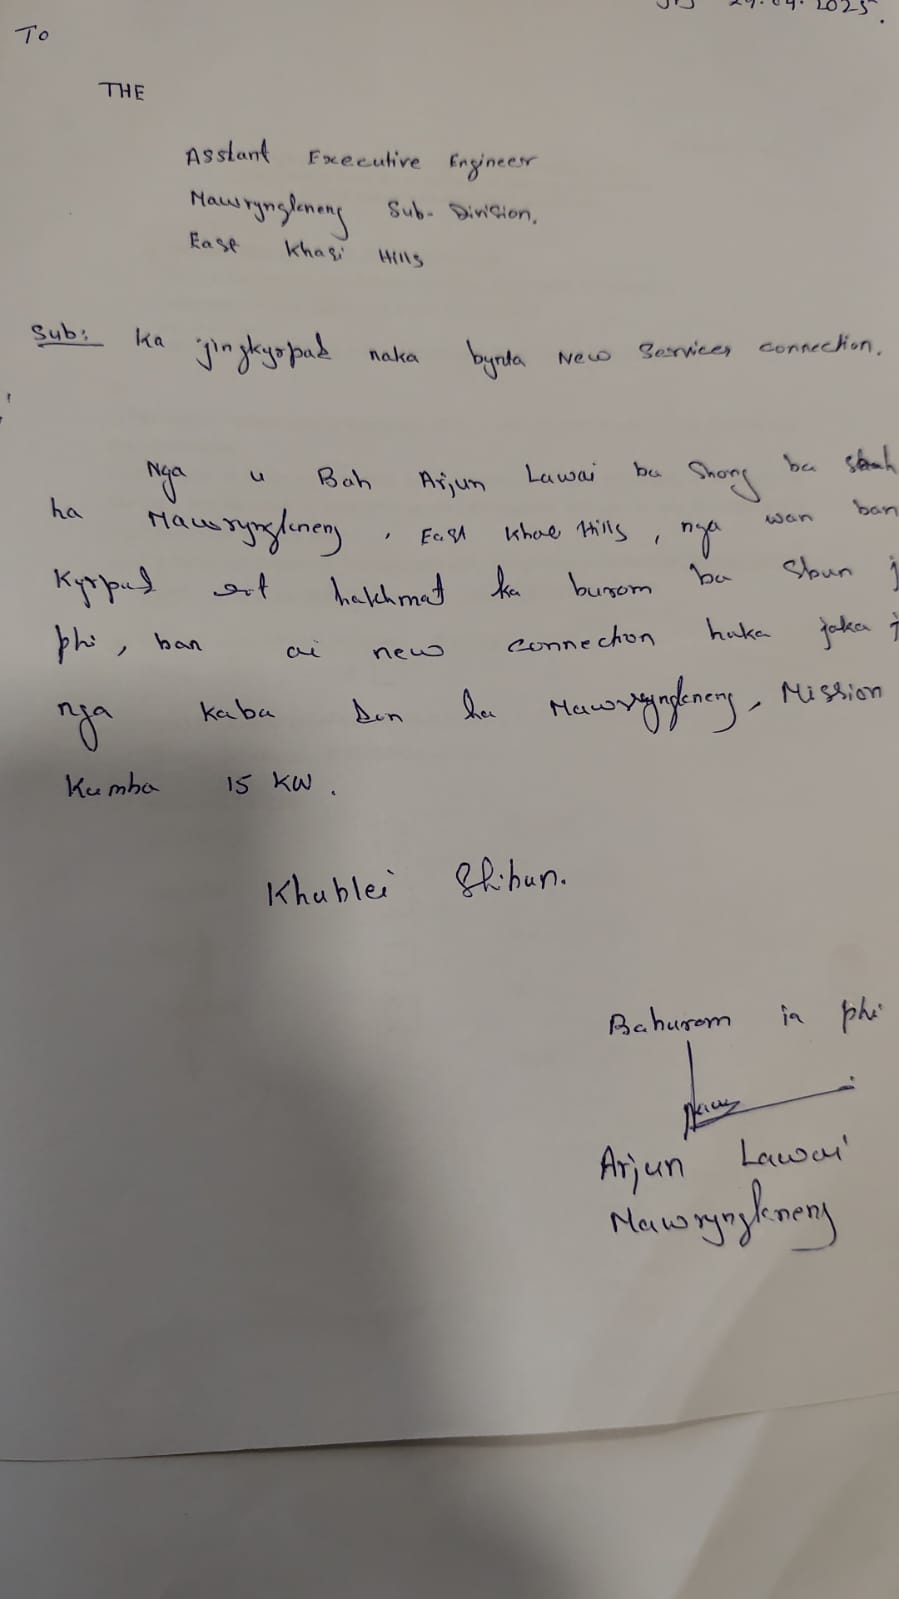 29.04.2025.
To
THE
Asstant Executive Engineer
Mawryngkneng Sub-Division.
East Khasi Hills
Sub: Ka jingkyrpad naka bynta New Services connection.
Nga u Bah Arjun Lawai ba Shong ba
ha Mawryngkneng, East Khae Hills, nga wan ban
Kyrpad hakhmat ka burom ba Sbun j
phi, ban ai new connection haka jaka j
nga kaba Don ha Mawryngkneng, Mission
Kumba 15 KW.
Khublei Shibun.
Baburom ia phi
Arjun Lawai
Mawryngkneng